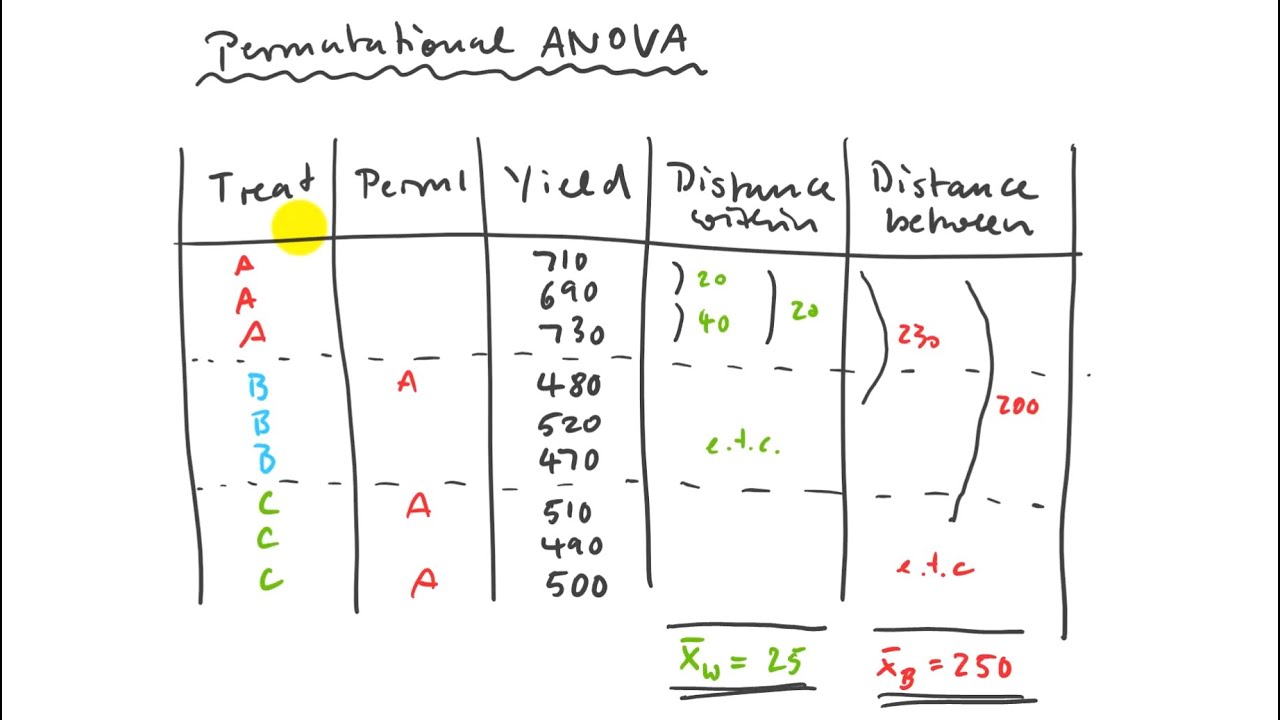 Permutational ANOVA
Treat Perm1 Yield Distance within Distance between
A 710
A 690 20
A 730 40 20 230
B A 480
B 520 200
B 470 e.t.c.
C A 510
C 490
C A 500 e.t.c
x̄w = 25 x̄B = 250